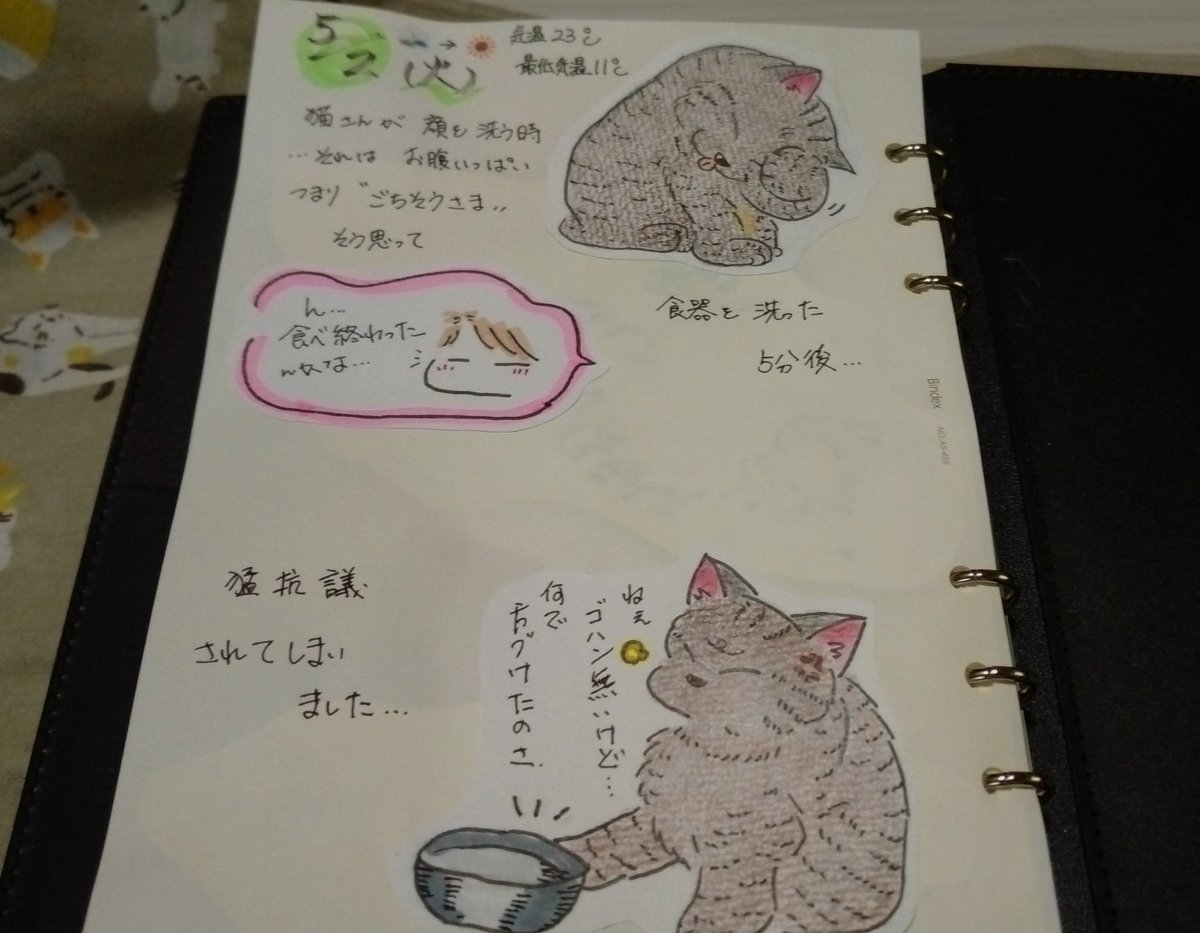 5/2
(火)
→
気温23℃
最低気温11℃
猫さんが 顔を 洗う時
…それは お腹いっぱい
つまり〝ごちそうさま〟
そう思って
ん…
食べ終わった
んだな…
食器を 洗った
5分後…
Bindex
猛抗議
されてしまい
ました…
ねぇ
ゴハン無いけど…
何で
片づけたのさ